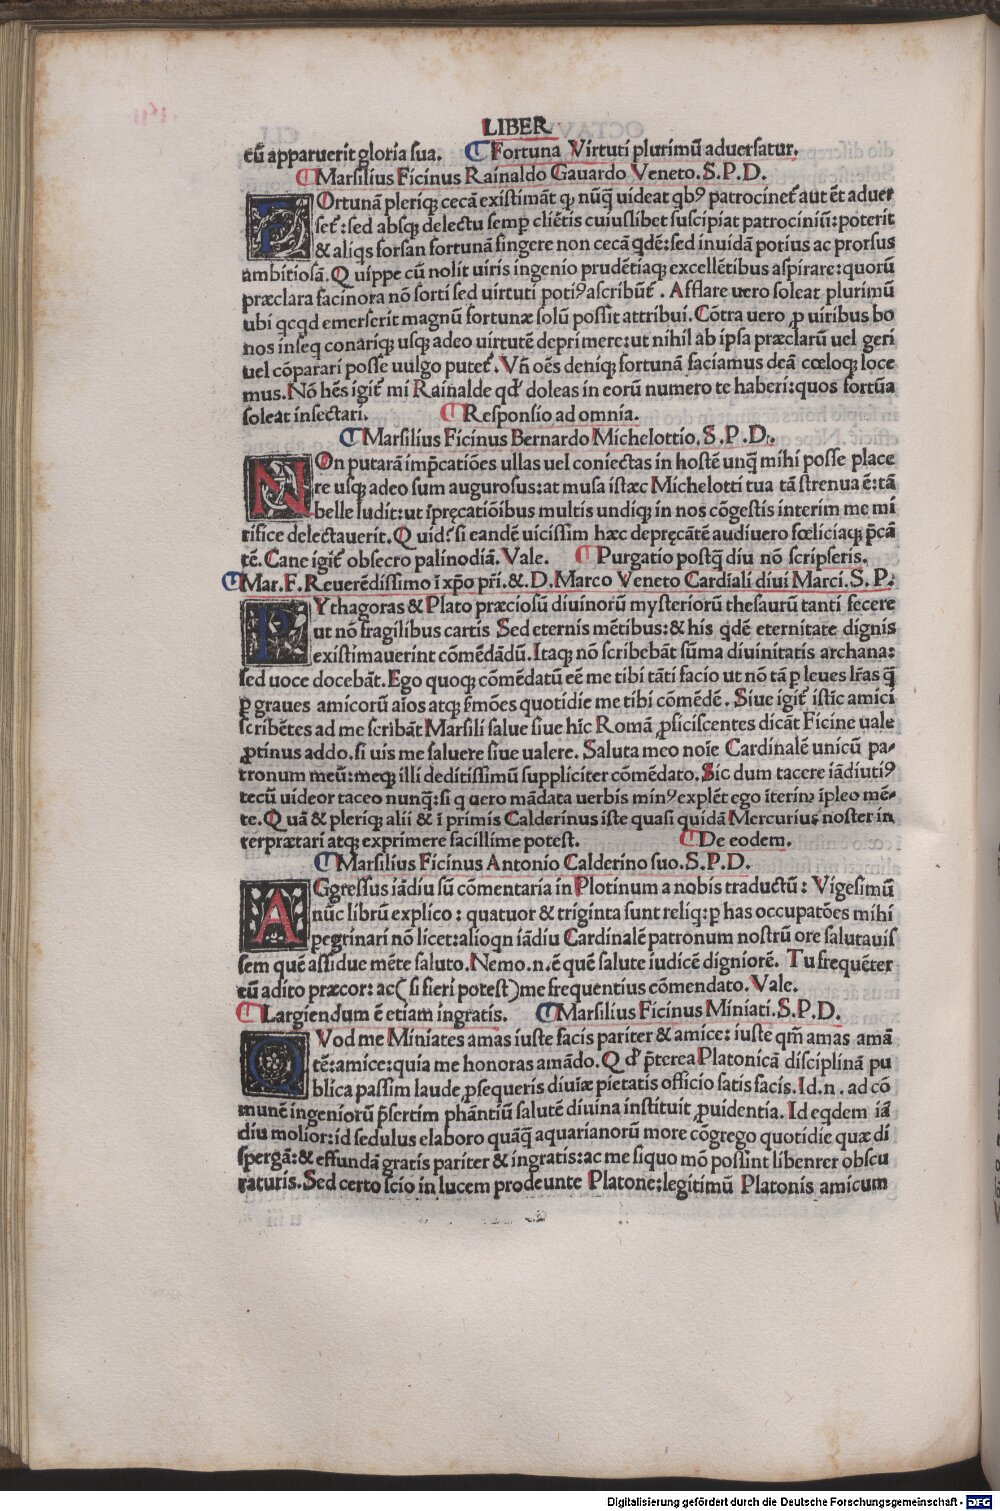 LIBER
cũ apparuerit gloria sua. Fortuna Virtuti plurimũ aduersatur.
Marsilius Ficinus Rainaldo Gauardo Veneto. S. P. D.
FOrtunã pleriqꝫ cecã existimãt qꝫ nũq̃ uideat qbꝰ patrocinet̃ aut ẽt aduer
set̃: sed absqꝫ delectu semp̱ cliẽtis cuiuslibet suscipiat patrociniũ: poterit
& aliqs forsan fortunã fingere non cecã qdẽ: sed inuidã potius ac prorsus
ambitiosã. Quippe cũ nolit uiris ingenio prudẽtiaqꝫ excellẽtibus aspirare: quorũ
præclara facinora nõ sorti sed uirtuti potiꝰ ascribũt̃. Afflare uero soleat plurimũ
ubi qcqd emerserit magnũ fortunæ solũ possit attribui. Cõtra uero ꝓ uiribus bo
nos inseq conariqꝫ usqꝫ adeo uirtutẽ deprimere: ut nihil ab ipsa præclarũ uel geri
uel cõparari posse uulgo putet̃. Vñ oẽs deniqꝫ fortunã faciamus deã cœloqꝫ loce
mus. Nõ hẽs igit̃ mi Rainalde qd̃ doleas in eorũ numero te haberi: quos fortũa
soleat insectari. Responsio ad omnia.
Marsilius Ficinus Bernardo Michelottio. S. P. D.
NOn putarã imp̃catiões ullas uel coniectas in hostẽ unq̃ mihi posse place
re usqꝫ adeo sum augurosus: at musa istæc Michelotti tua tã strenua ẽ: tã
belle ludit: ut ĩpręcatiõibus multis undiqꝫ in nos cõgestis interim me mi
rifice delectauerit. Quid̃ si eandẽ uicissim hæc depręcãtẽ audiuero fœliciaqꝫ p̃cã
tẽ. Cane igit̃ obsecro palinodiã. Vale. Purgatio postq̃ diu nõ scripseris.
Mar. F. Reuerẽdissimo ĩ xp̃o pr̃i. &. D. Marco Veneto Cardiali diui Marci. S. P.
PYthagoras & Plato præciosũ diuinorũ mysteriorũ thesaurũ tanti fecere
ut nõ fragilibus cartis Sed eternis mẽtibus: & his qdẽ eternitate dignis
existimauerint cõmẽdãdũ. Itaqꝫ nõ scribebãt sũma diuinitatis archana:
sed uoce docebãt. Ego quoqꝫ cõmẽdatũ eẽ me tibi tãti facio ut nõ tã p̱ leues lr̃as q̃
p̱ graues amicorũ aĩos atqꝫ s̃mões quotidie me tibi cõmẽdẽ. Siue igit̃ istĩc amici
scribẽtes ad me scribãt Marsili salue siue hĩc Romã ꝓficiscentes dicãt Ficine uale
ꝓtinus addo. si uis me saluere siue ualere. Saluta meo noĩe Cardinalẽ unicũ pa-
tronum meũ: meqꝫ illi deditissimũ suppliciter cõmẽdato. Sic dum tacere iãdiutiꝰ
tecũ uideor taceo nunq̃: si q uero mãdata uerbis minꝰ explẽt ego ĩterim ĩpleo mẽ-
te. Quã & pleriqꝫ alii & ĩ primis Calderinus iste quasi quidã Mercurius noster in
terprætari atqꝫ exprimere facillime potest. De eodem.
Marsilius Ficinus Antonio Calderino suo. S. P. D.
AGgressus iãdiu sũ cõmentaria in Plotinum a nobis traductũ: Vigesimũ
nũc librũ explico: quatuor & triginta sunt reliq: p̱ has occupatões mihi
pegrinari nõ licet: alioqn iãdiu Cardinalẽ patronum nostrũ ore salutauis
sem quẽ assidue mẽte saluto. Nemo. n. ẽ quẽ salute iudicẽ digniorẽ. Tu frequẽter
eũ adito præcor: ac (si fieri potest) me frequentius cõmendato. Vale.
Largiendum ẽ etiam ingratis. Marsilius Ficinus Miniati. S. P. D.
QVod me Miniates amas iuste facis pariter & amice: iuste qm̃ amas amã
tẽ: amice: quia me honoras amãdo. Qd̃ p̃terea Platonicã disciplinã pu
blica passim laude ꝓsequeris diuiæ pietatis officio satis facis. Id. n. ad cõ
munẽ ingeniorũ p̃sertim phãntiũ salutẽ diuina instituit ꝓuidentia. Id eqdem iã
diu molior: id sedulus elaboro quãq̃ aquarianorũ more cõgrego quotidie quæ di
spergã: & effundã gratis pariter & ingratis: ac me siquo mõ possint libenrer obscu
raturis. Sed certo scio in lucem prodeunte Platone: legitimũ Platonis amicum
Digitalisierung gefördert durch die Deutsche Forschungsgemeinschaft - DFG